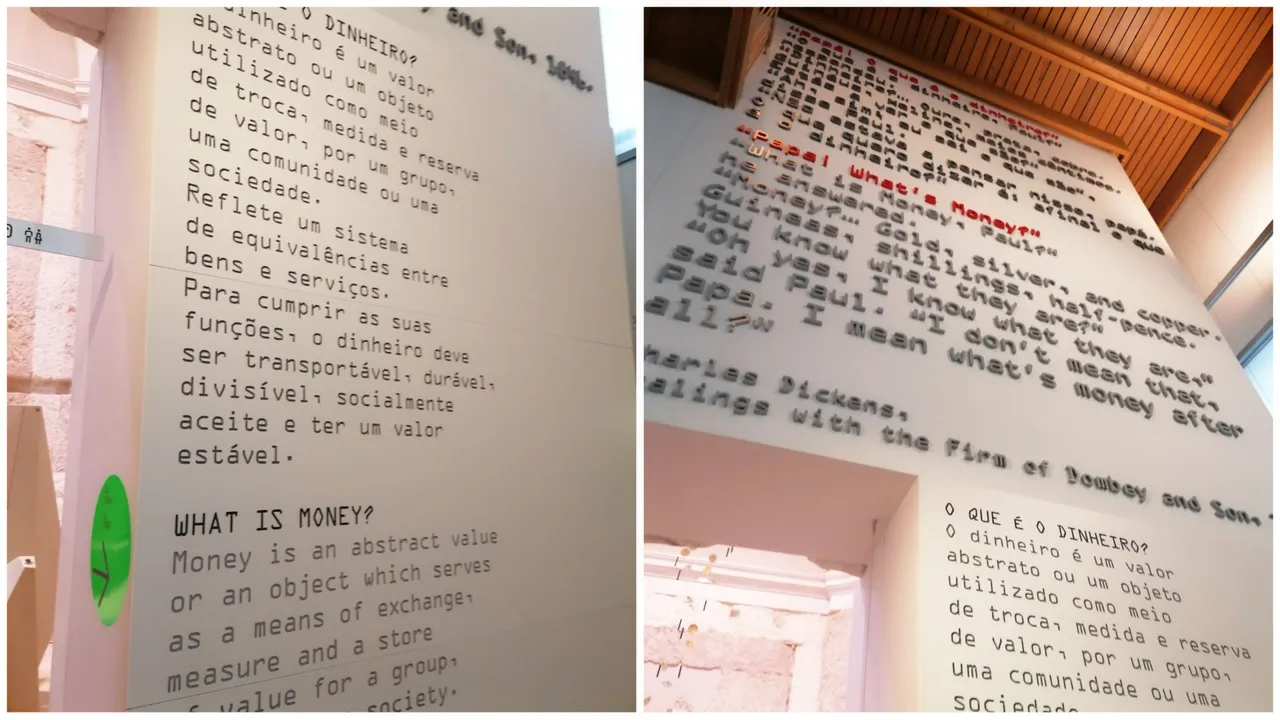 y and Son, 1846.
É O DINHEIRO?
dinheiro é um valor
abstrato ou um objeto
utilizado como meio
de troca, medida e reserva
de valor, por um grupo,
uma comunidade ou uma
sociedade.
Reflete um sistema
de equivalências entre
bens e serviços.
Para cumprir as suas
funções, o dinheiro deve
ser transportável, durável,
divisível, socialmente
aceite e ter um valor
estável.
WHAT IS MONEY?
Money is an abstract value
or an object which serves
as a means of exchange,
measure and a store
of value for a group,
society.
"Papá! o que é o dinheiro?"
dinheiro, Paul?"
"Papa! What's Money?"
"What is Money, Paul?"
he answered.
"Money?… Gold, silver, and copper.
Guineas, shillings, half-pence.
You know what they are?"
"Oh yes, I know what they are,"
said Paul. "I don't mean that,
Papa. I mean what's money after
all?"
harles Dickens,
ealings with the Firm of Dombey and Son,
O QUE É O DINHEIRO?
O dinheiro é um valor
abstrato ou um objeto
utilizado como meio
de troca, medida e reserva
de valor, por um grupo,
uma comunidade ou uma
sociedade.